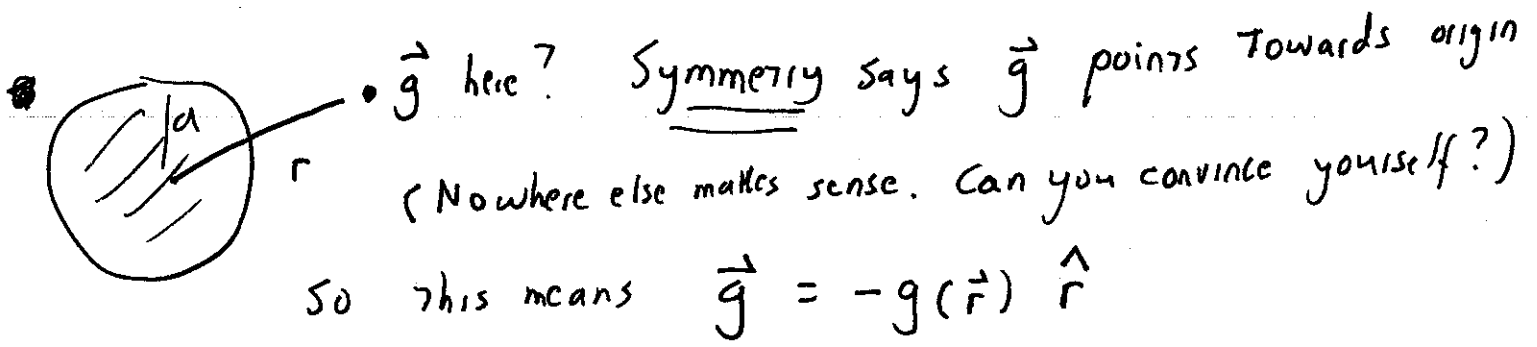 g⃗ here? Symmetry says g⃗ points Towards origin
a
r
(Nowhere else makes sense. Can you convince yourself?)
So this means g⃗ = -g(r⃗) r̂